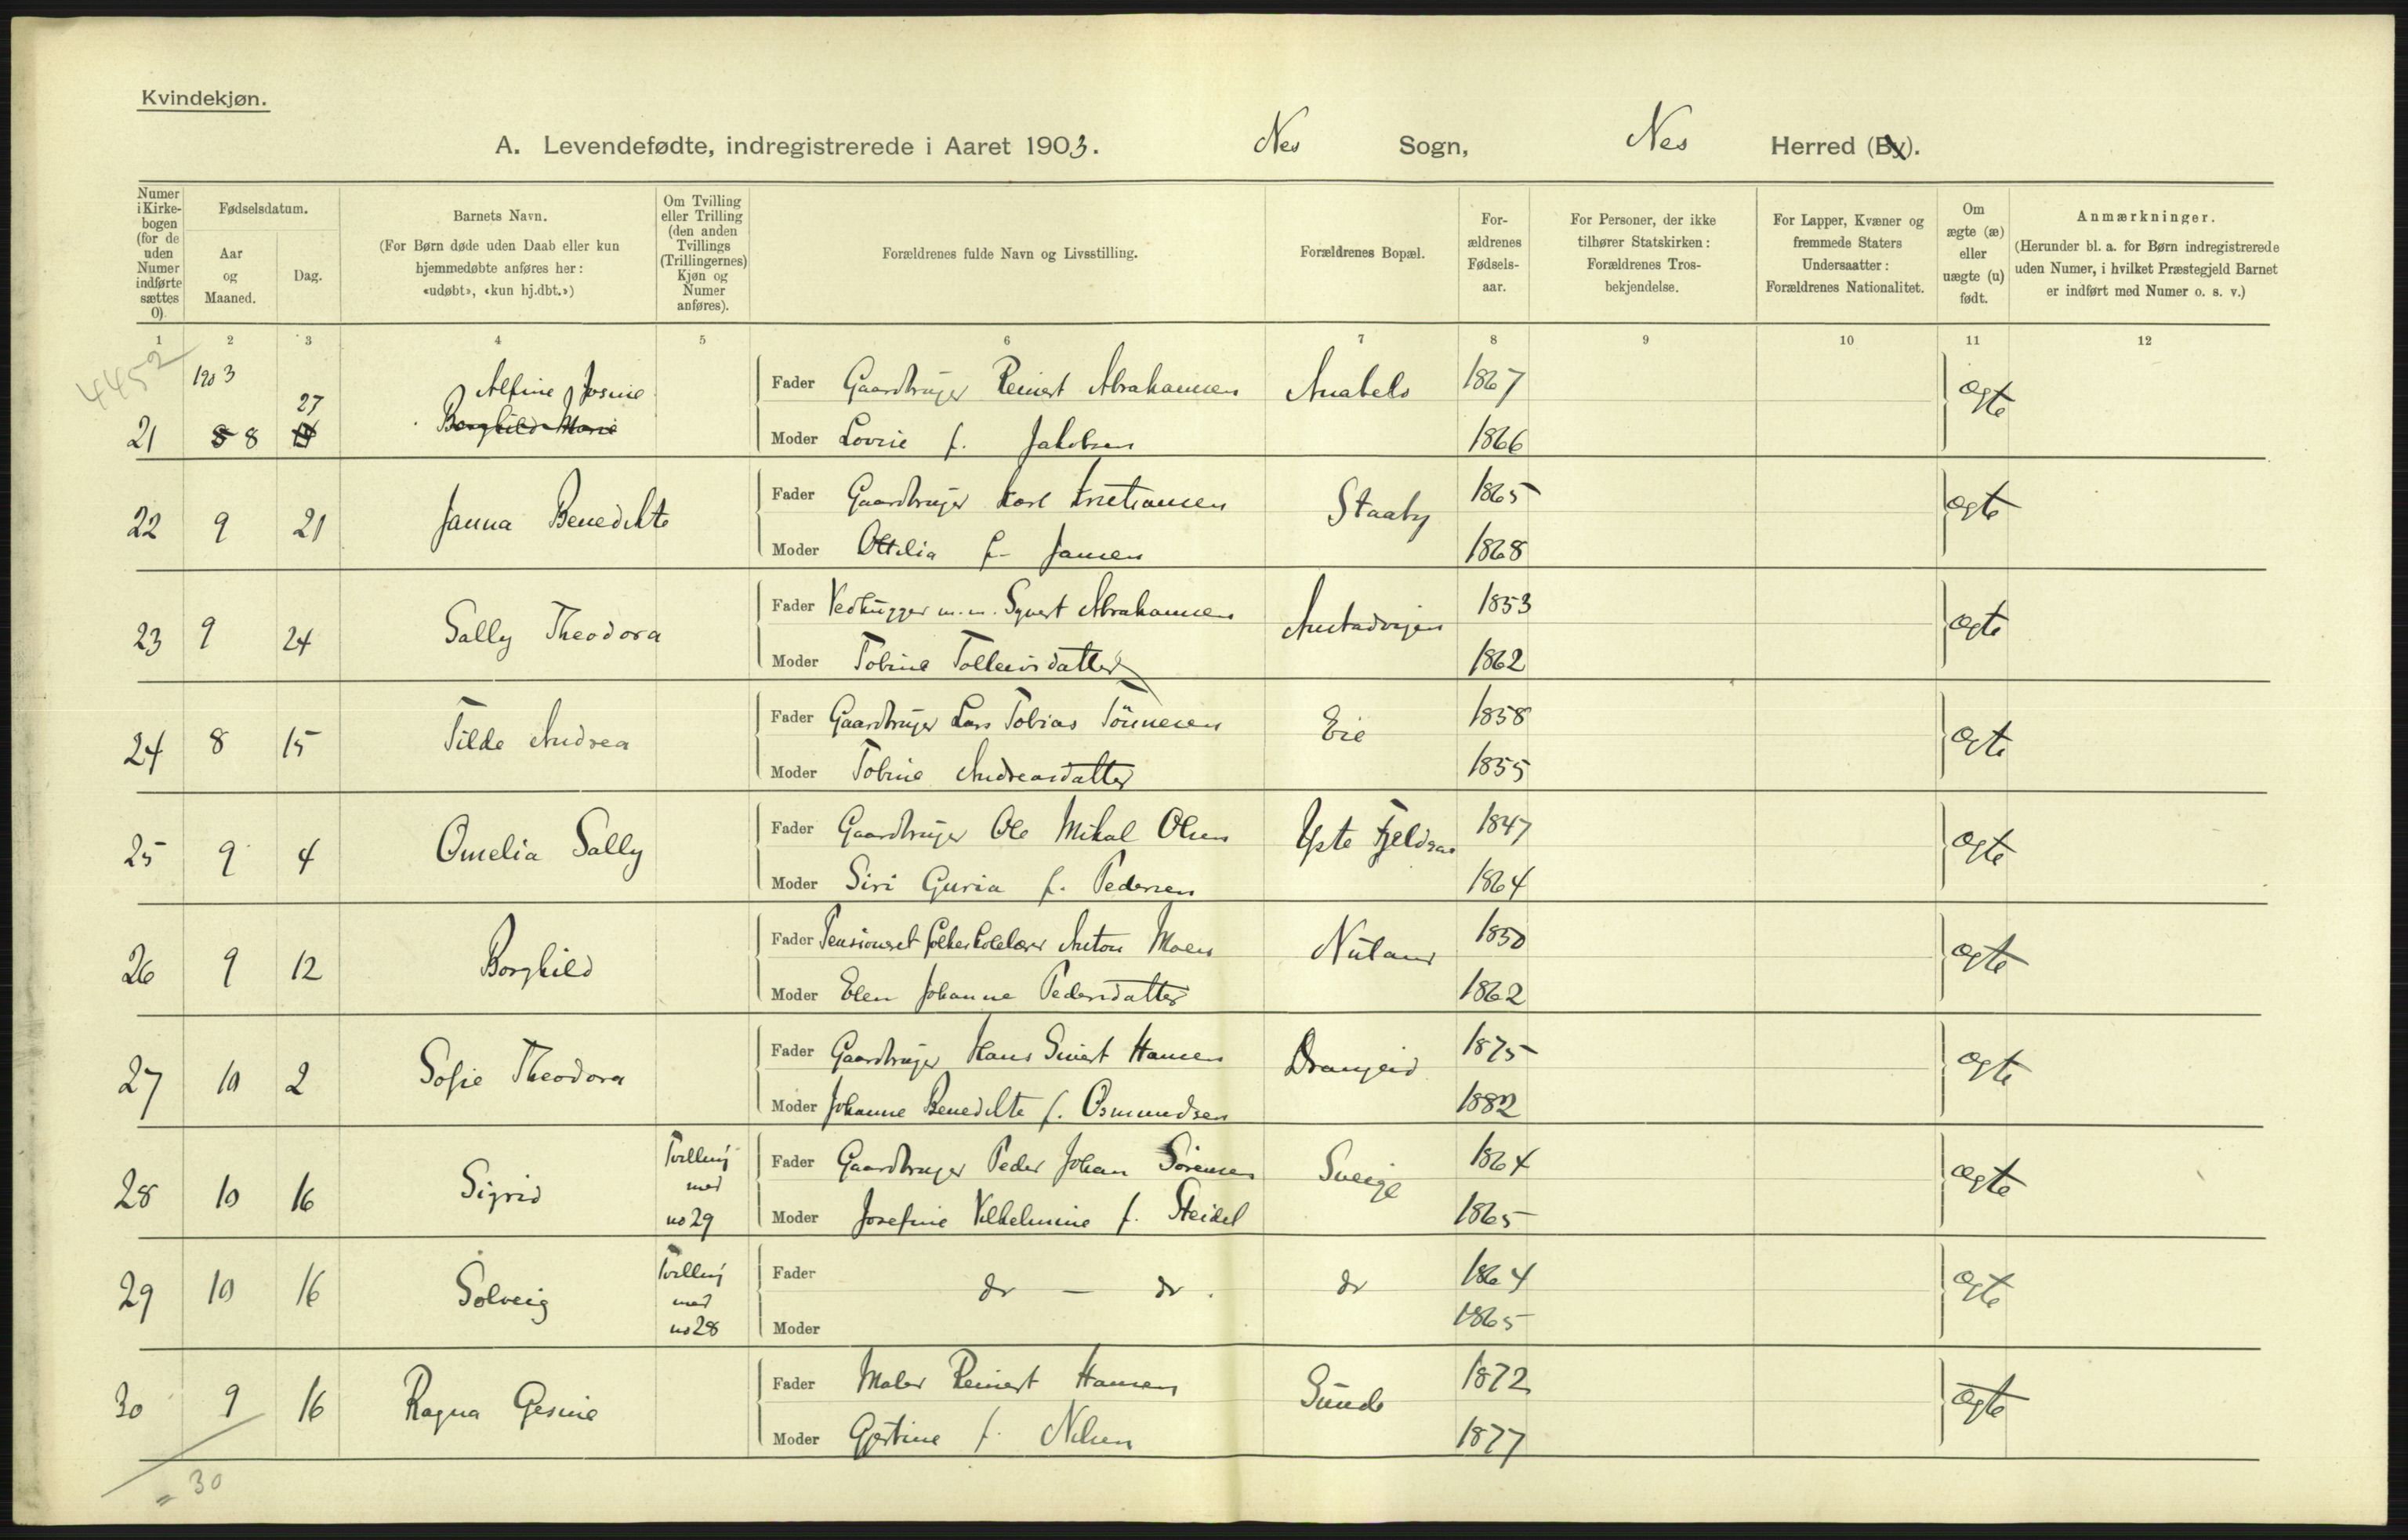 Kvindekjøn.
A. Levendefødte, indregistrerede i Aaret 1903. Nes Sogn, Nes Herred (By).
Numer i Kirke-bogen (for de uden Numer indførte sættes 0).
Fødselsdatum.
Aar og Maaned.
Dag.
Barnets Navn.
(For Børn døde uden Daab eller kun hjemmedøbte anføres her: «udøbt», «kun hj.dbt.»)
Om Tvilling eller Trilling (den anden Tvillings (Trillingernes) Kjøn og Numer anføres).
Forældrenes fulde Navn og Livsstilling.
Forældrenes Bopæl.
For-ældrenes Fødsels-aar.
For Personer, der ikke tilhører Statskirken: Forældrenes Tros-bekjendelse.
For Lapper, Kvæner og fremmede Staters Undersaatter: Forældrenes Nationalitet.
Om ægte (æ) eller uægte (u) født.
Anmærkninger.
(Herunder bl. a. for Børn indregistrerede uden Numer, i hvilket Præstegjeld Barnet er indført med Numer o. s. v.)
1 2 3 4 5 6 7 8 9 10 11 12
4452
1903
21 8 27 Alfine Josine
Borghild Marie
Fader Gaardbruger Reinert Abrahamsen Anabelo 1867 ægte
Moder Lovise f. Jakobsen 1866
22 9 21 Janna Benedikte
Fader Gaardbruger Karl Kristiansen Staaby 1865 ægte
Moder Ottilia f. Jansen 1868
23 9 24 Sally Theodora
Fader Vedhugger m.m. Syvert Abrahamsen 1853 ægte
Moder Tobine Tollevsdatter 1862
24 8 15 Tilde Andrea
Fader Gaardbruger Lars Tobias Tönnesen Eie 1858 ægte
Moder Tobine Andreasdatter 1855
25 9 4 Omelia Sally
Fader Gaardbruger Ole Mikal Olsen Yste Fjeldsaa 1847 ægte
Moder Siri Guria f. Pedersen 1864
26 9 12 Borghild
Fader Pensioneret folkeskolelærer Anton Moen 1850 ægte
Moder Elen Johanne Pedersdatter 1862
27 10 2 Sofie Theodora
Fader Gaardbruger Hans Sivert Hansen Drangeid 1875 ægte
Moder Johanne Benedikte f. Osmundsen 1882
28 10 16 Sigrid Tvilling med no 29
Fader Gaardbruger Peder Johan Sörensen Sveige 1864 ægte
Moder Josefine Vilhelmine f. Steidel 1865
29 10 16 Solveig Tvilling med no 28
Fader do — do. do 1864 ægte
Moder 1865
30 9 16 Ragna Gesine
Fader Maler Reinert Hansen Sunde 1872 ægte
Moder Gjertine f. Nilsen 1877
= 30